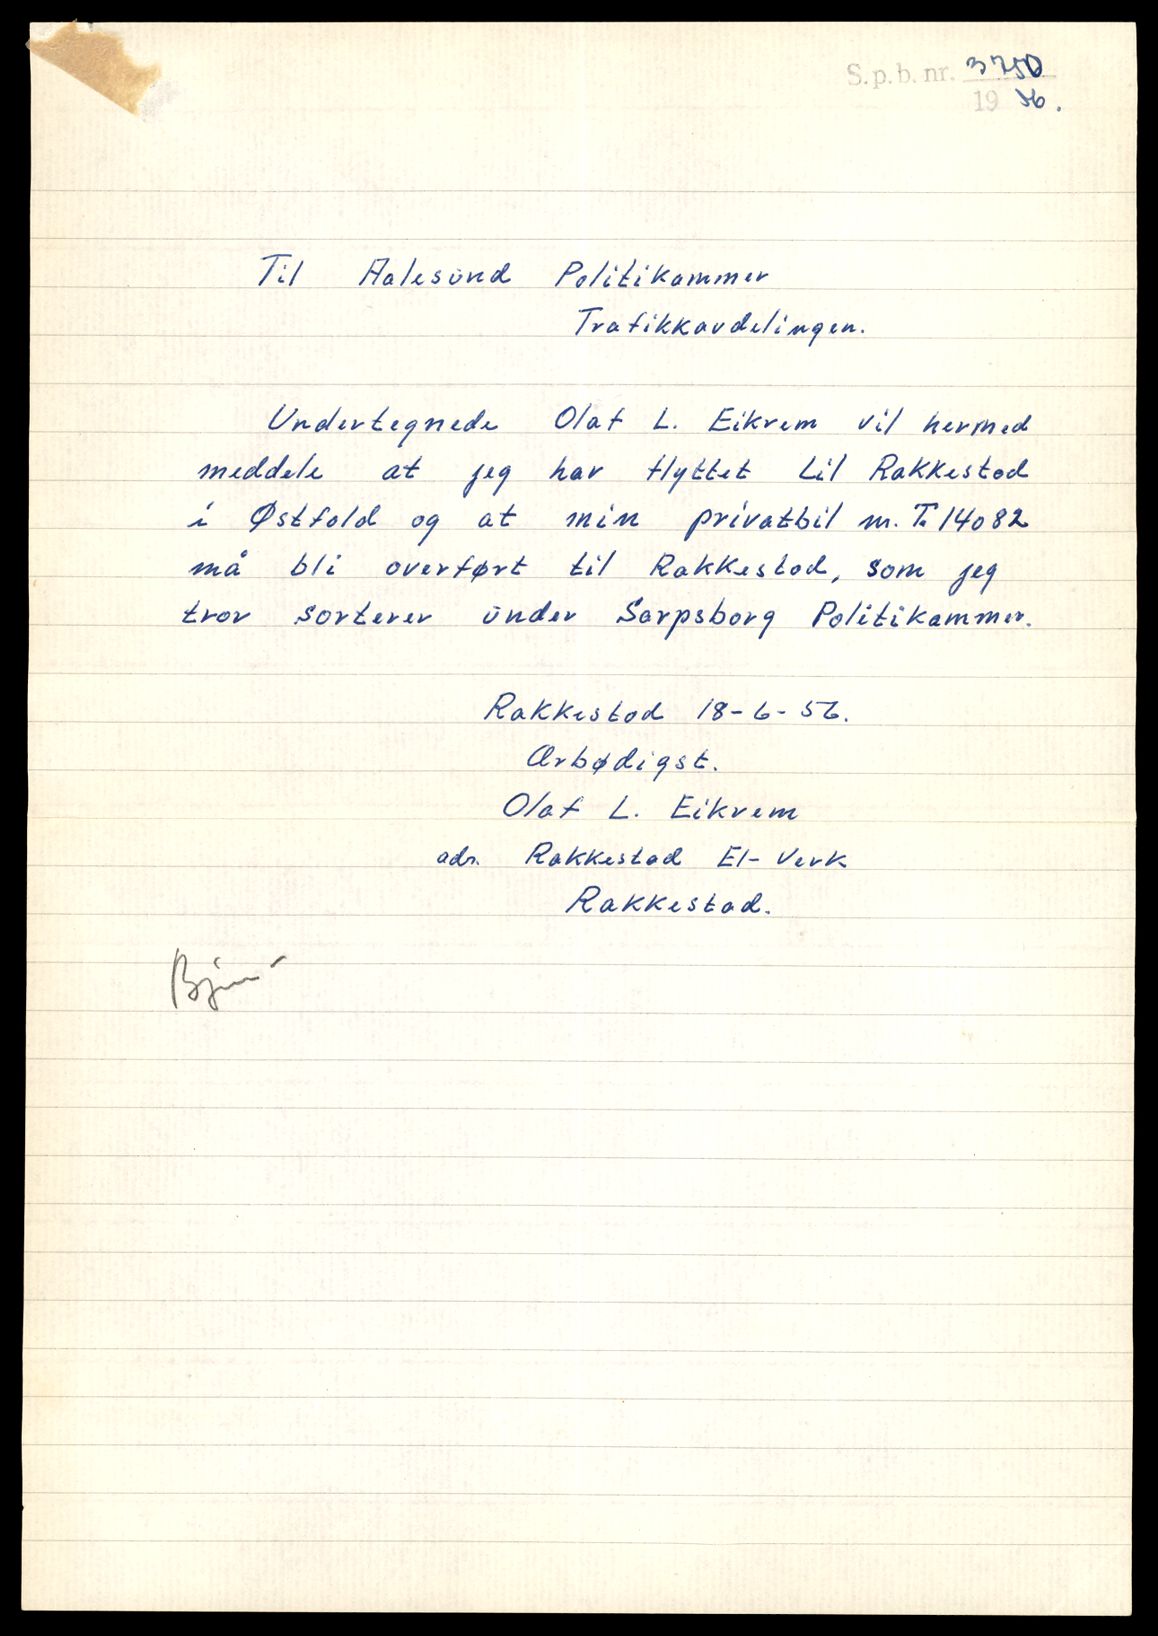 S.p.b. nr. 3750
19 56.
Til Aalesund Politikammer
Trafikkavdelingen.
Undertegnede Olaf L. Eikrem vil hermed
meddele at jeg har flyttet til Rakkestad
i Østfold og at min privatbil m. T. 14082
må bli overført til Rakkestad, som jeg
tror sorterer under Sarpsborg Politikammer.
Rakkestad 18-6-56.
Ærbødigst.
Olaf L. Eikrem
adr. Rakkestad El-Verk
Rakkestad.